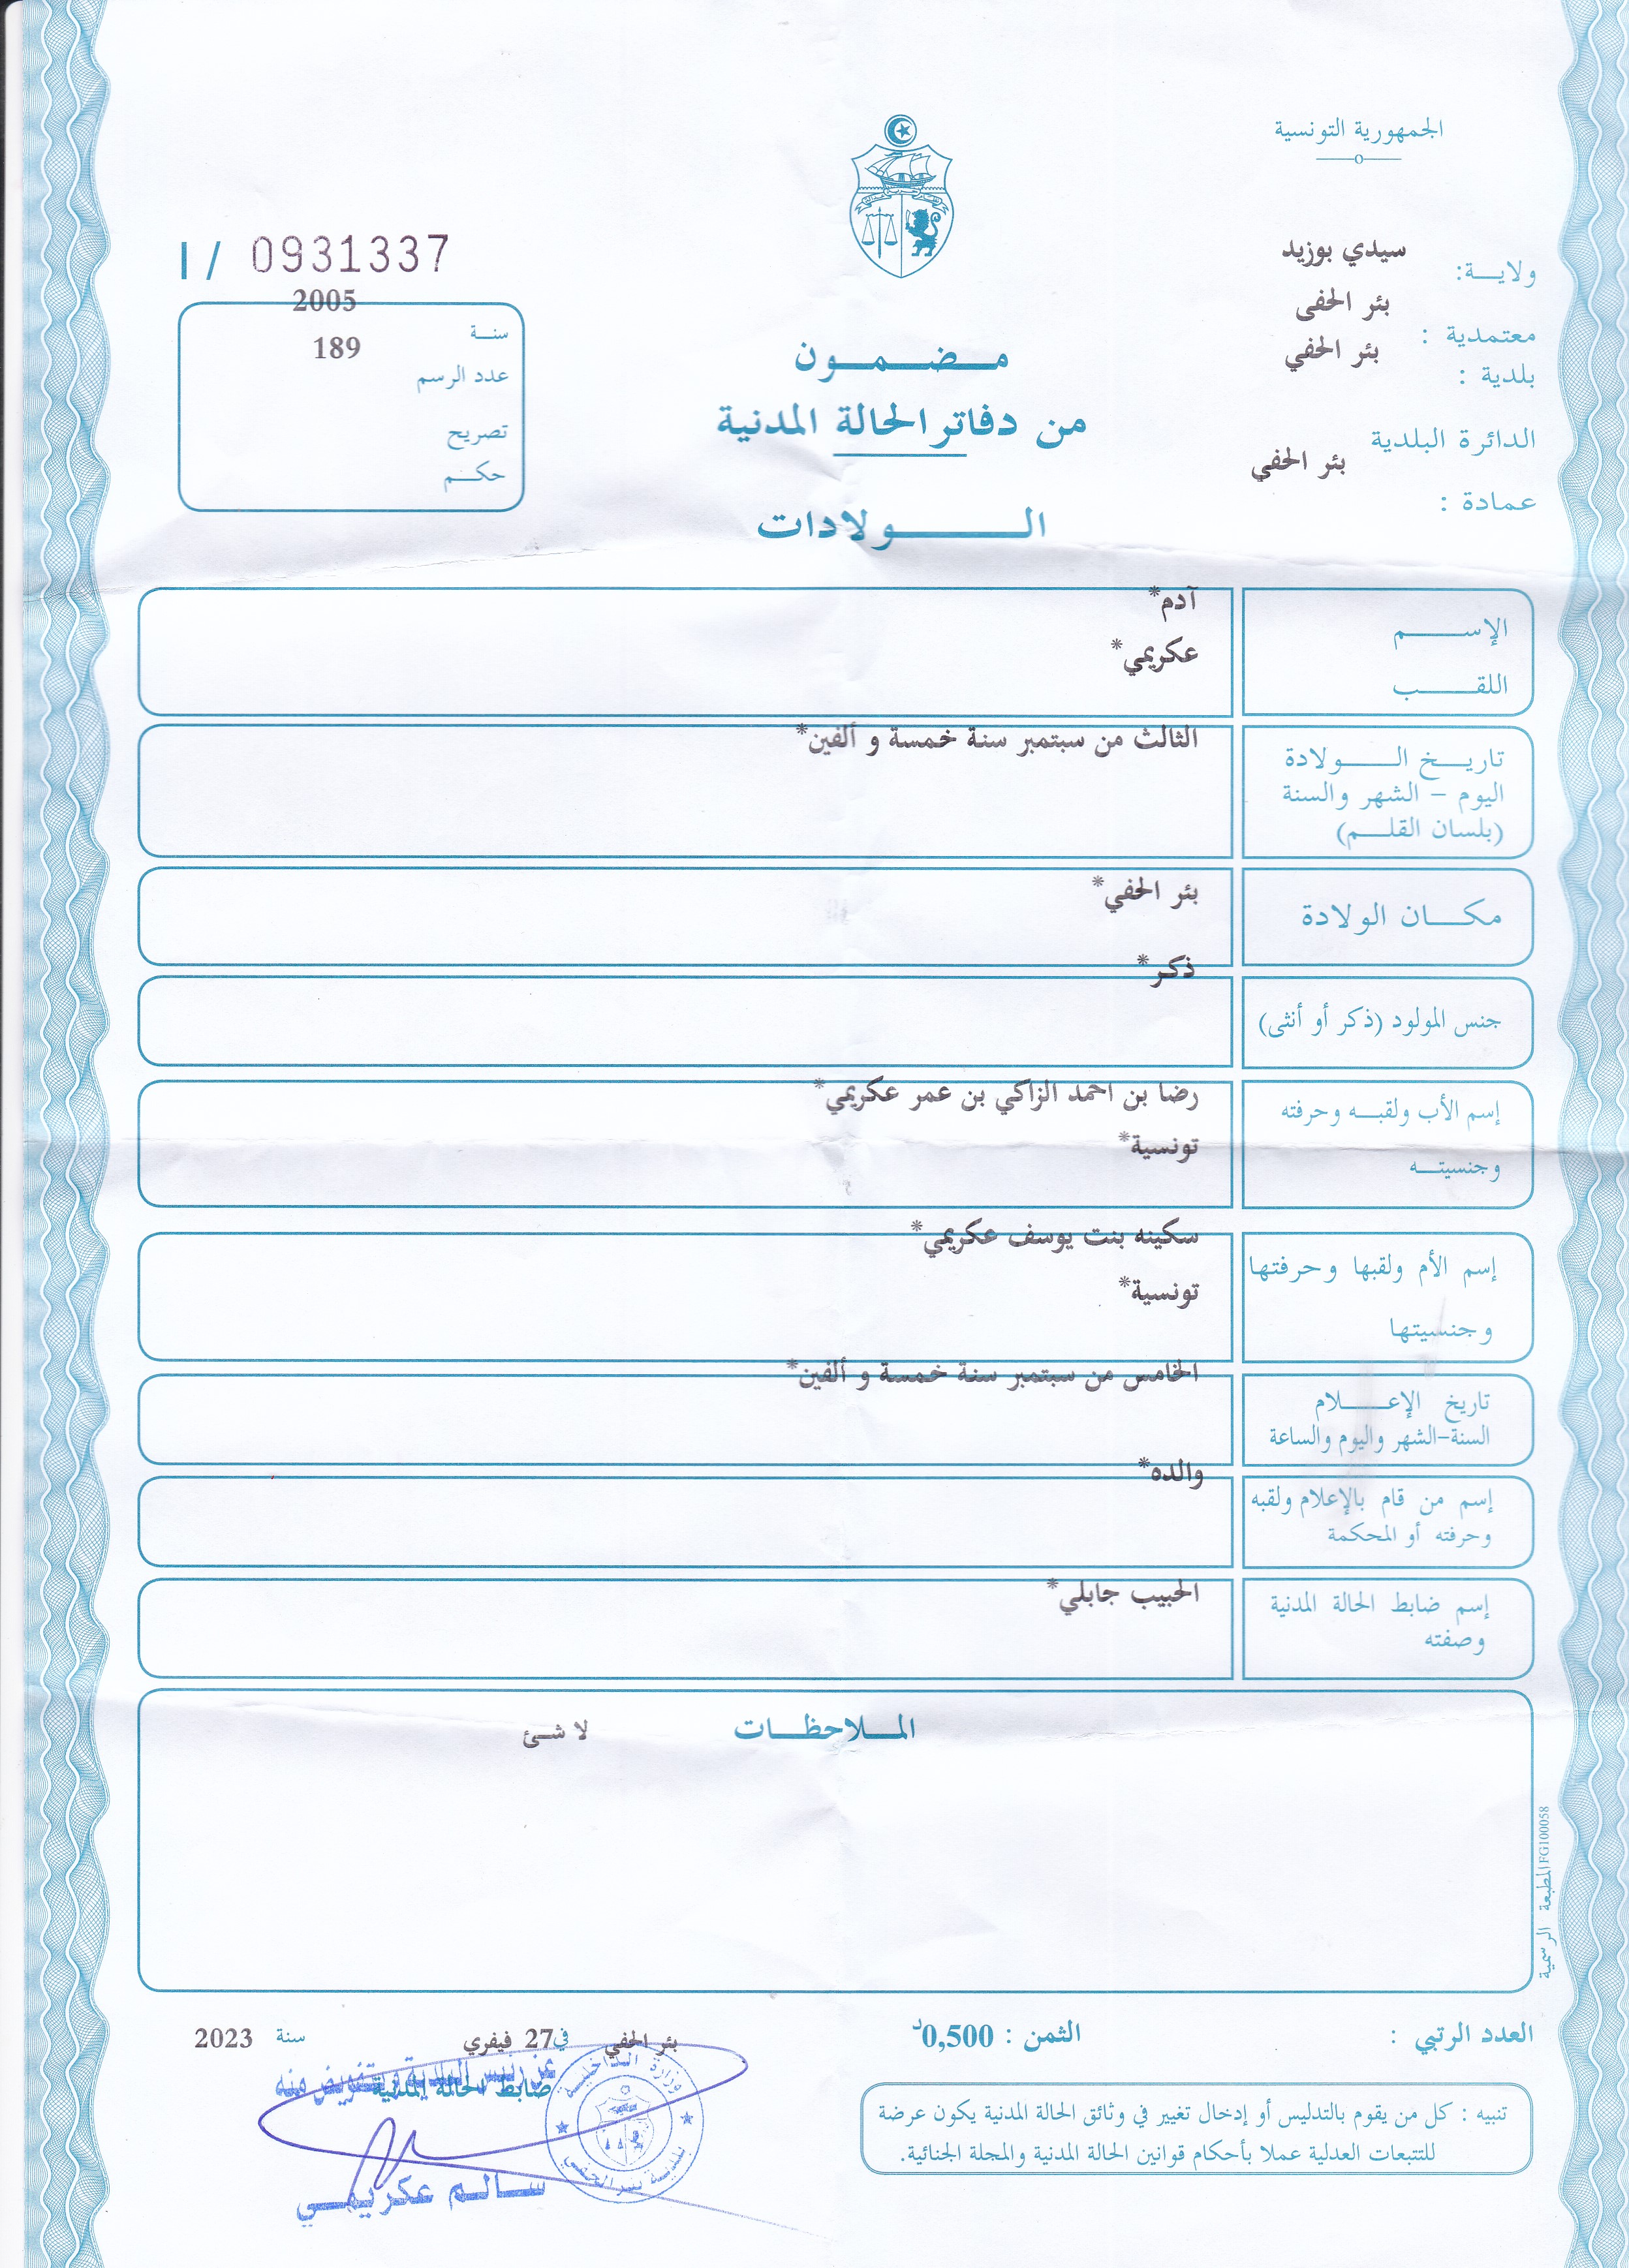 الجمهورية التونسية
ولايــة: سيدي بوزيد
معتمدية : بئر الحفى
بلدية : بئر الحفي
الدائرة البلدية
بئر الحفي
عمادة :
I / 0931337
2005
سنـة
189
عدد الرسم
تصريح
حكـم
مـضـمـون
من دفاتر الحالة المدنية
الـولادات
الإسـم
آدم*
اللقـب
عكريمي*
تاريـخ الـولادة
اليوم – الشهر والسنة
(بلسان القلـم)
الثالث من سبتمبر سنة خمسة و ألفين*
مكـان الولادة
بئر الحفي*
جنس المولود (ذكر أو أنثى)
ذكر*
إسم الأب ولقبـه وحرفته
وجنسيتـه
رضا بن احمد الزاكي بن عمر عكريمي*
تونسية*
إسم الأم ولقبها وحرفتها
وجنسيتها
سكينه بنت يوسف عكريمي*
تونسية*
تاريخ الإعـلام
السنة–الشهر واليوم والساعة
الخامس من سبتمبر سنة خمسة و ألفين*
إسم من قام بالإعلام ولقبه
وحرفته أو المحكمة
والده*
إسم ضابط الحالة المدنية
وصفته
الحبيب جابلي*
المـلاحظـات
لا شئ
المطبعة الرسمية FG100058
العدد الرتبي :
الثمن : 0,500د
بئر الحفي في 27 فيفري سنة 2023
عن رئيس البلدية وبتفويض منه
ضابط الحالة المدنية
وزارة الداخلية
بلدية بئر الحفي
سـالـم عكريمـي
تنبيه : كل من يقوم بالتدليس أو إدخال تغيير في وثائق الحالة المدنية يكون عرضة
للتتبعات العدلية عملا بأحكام قوانين الحالة المدنية والمجلة الجنائية.